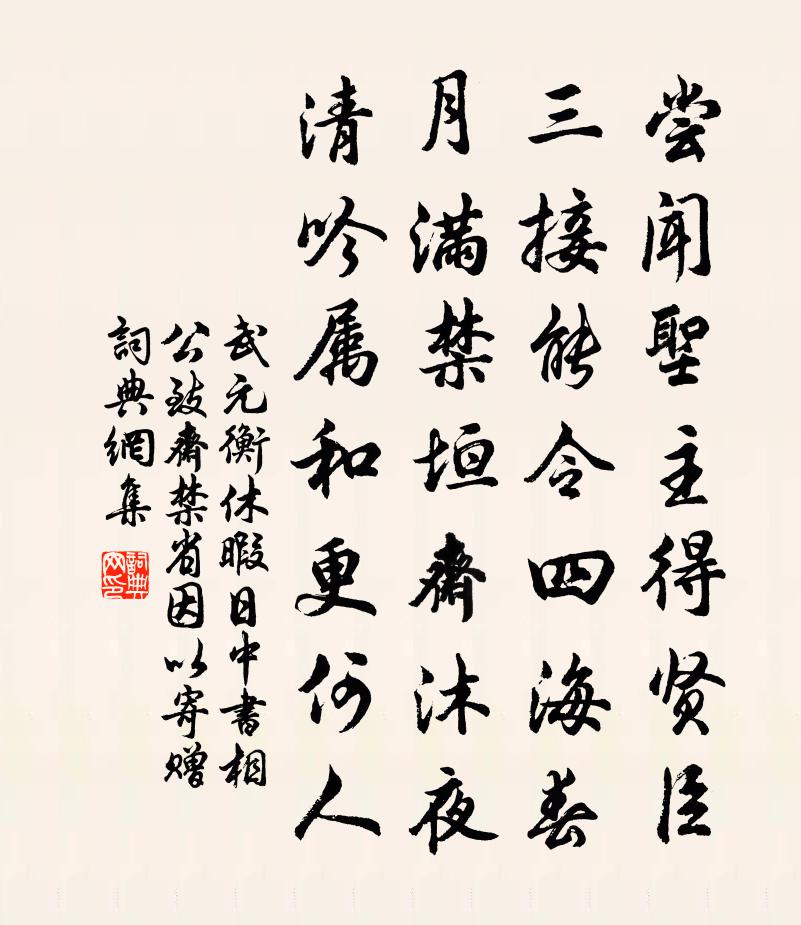 尝闻聖主得贤臣
三接能令四海春
月满禁垣齋沐夜
清吟属和更何人
武元衡休暇日中書相
公致齋禁省因以寄赠
詞典網集
詞典网印